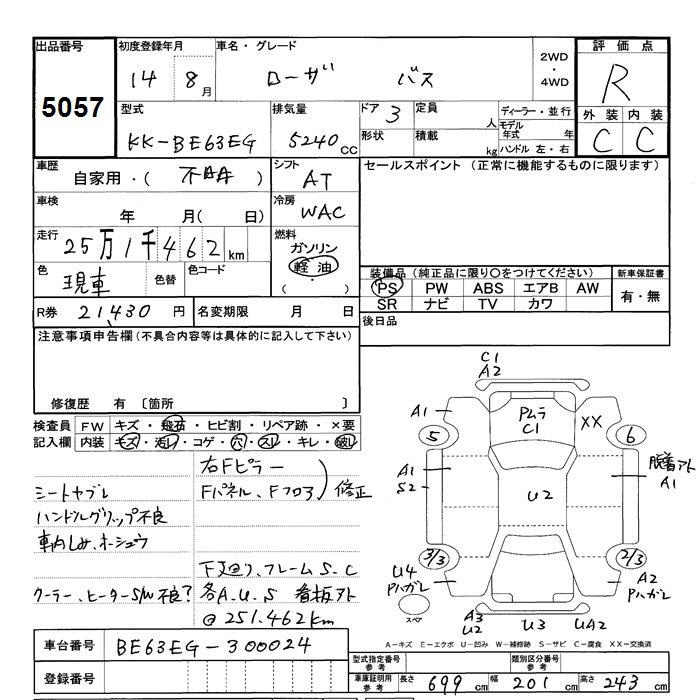 出品番号 5057
初度登録年月 14 8月
車名・グレード ローザ バス
2WD・4WD
評価点 R
外装 C 内装 C
型式 KK-BE63EG
排気量 5240cc
ドア 3 定員 人
形状 積載 kg
ディーラー・並行
モデル年式 年
ハンドル 左・右
車歴 自家用・(不明)
シフト AT
セールスポイント(正常に機能するものに限ります)
車検 年 月(日)
冷房 WAC
走行 25万1千462km
燃料 ガソリン 軽油 ( )
色 現車 色替 色コード
装備品(純正品に限り○をつけてください)
PS PW ABS エアB AW
SR ナビ TV カワ
新車保証書 有・無
R券 21,430円 名変期限 月 日
後日品
注意事項申告欄(不具合内容等は具体的に記入して下さい)
修復歴 有 〔箇所 〕
検査員記入欄
FW キズ・飛石・ヒビ割・リペア跡・×要
内装 キズ・汚レ・コゲ・穴・スレ・キレ・破レ
右Fピラー
Fパネル、Fフロア)修正
シートヤブレ
ハンドルグリップ不良
車内しみ、ホーシュウ
下廻り、フレームS.C
クーラー、ヒーターS/W不良?
各A.U.S 看板アト
@251.462km
C1
A2
A1
PムラC1
XX
5
6
A1
S2
U2
脱着アト
A1
3/3
2/3
U4
Pハガレ
A2
Pハガレ
スペア
A3
U2
U3
UA2
車台番号 BE63EG-300024
登録番号
A-キズ E-エクボ U-凹み W-補修跡 S-サビ C-腐食 XX-交換済
型式指定番号 参考
類別区分番号 参考
車庫証明用 参考 長さ 699cm 幅 201cm 高さ 243cm